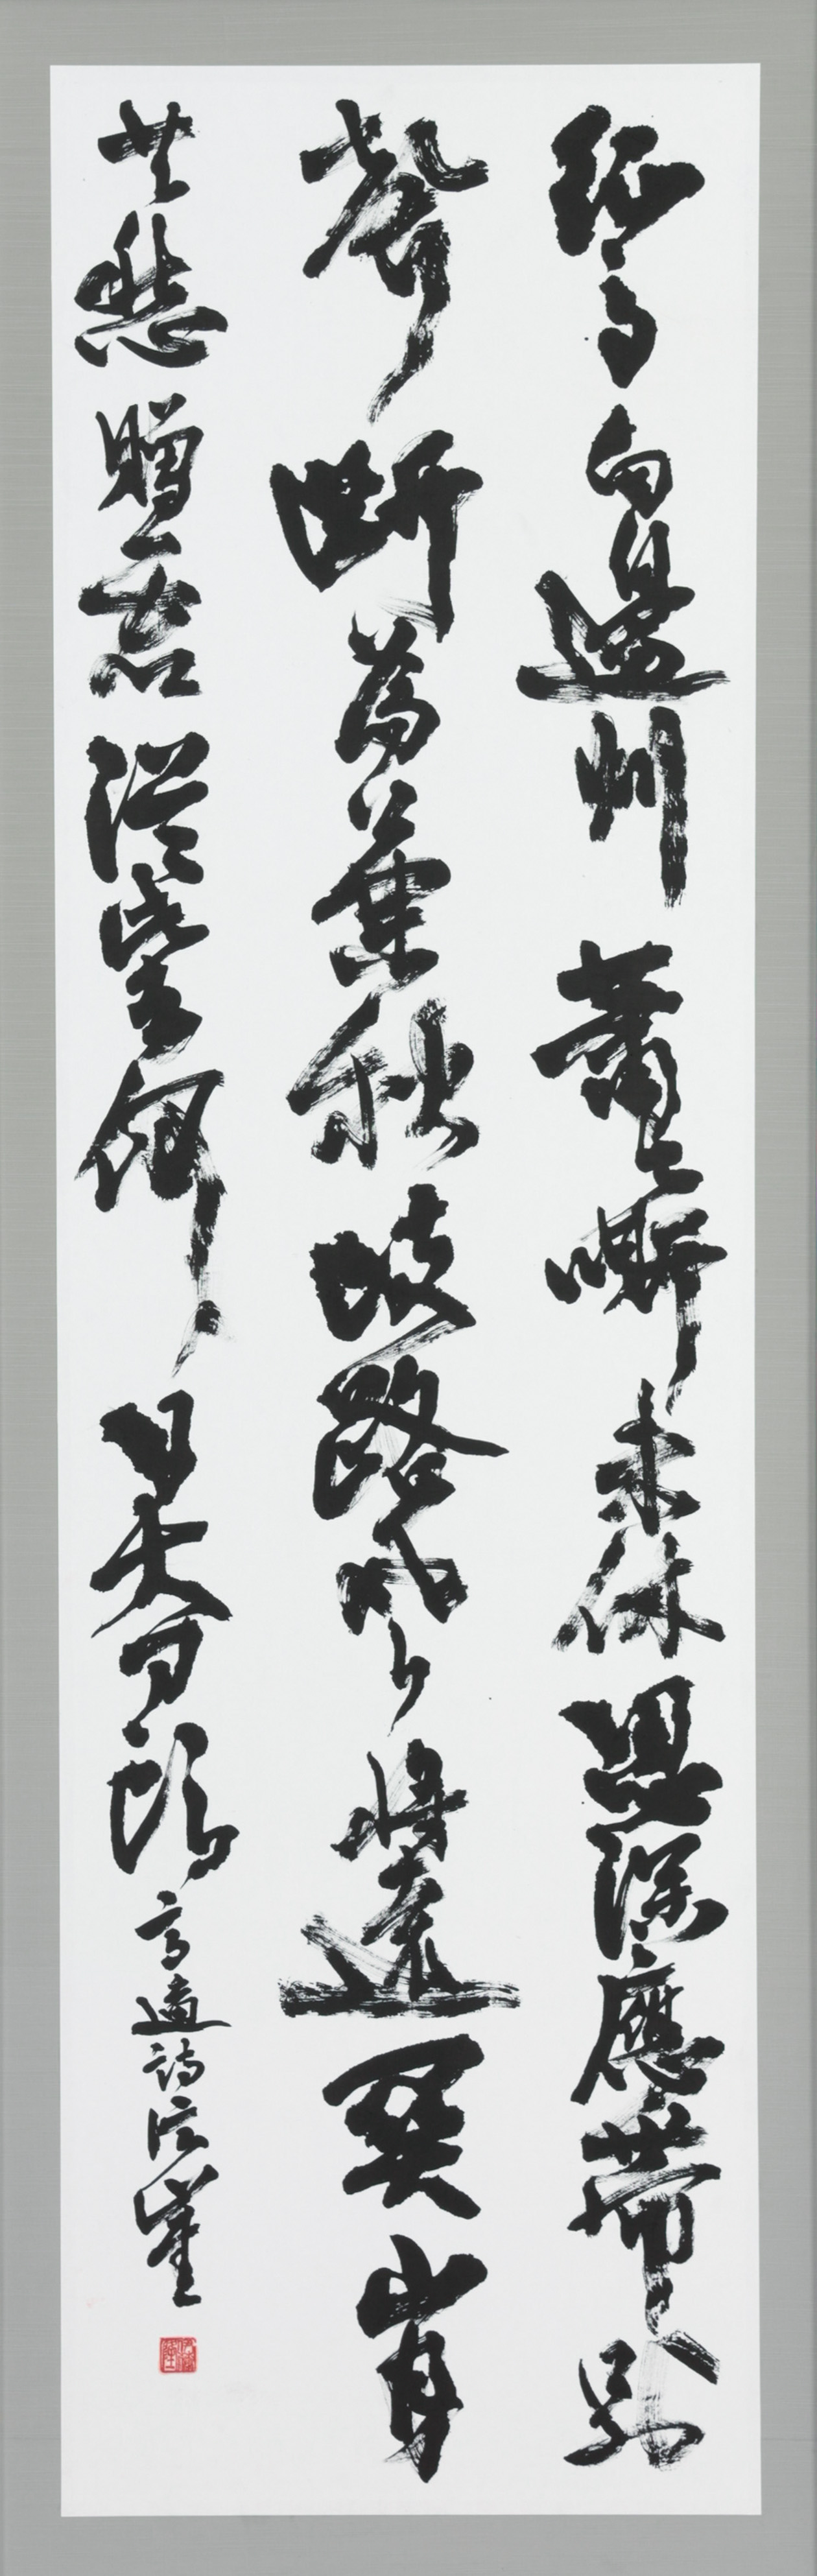 征馬向邊州蕭々嘶未休思深應帶別
聲斷為兼秋岐路風將遠關山月
共愁贈君從此去何日大刀頭高適詩